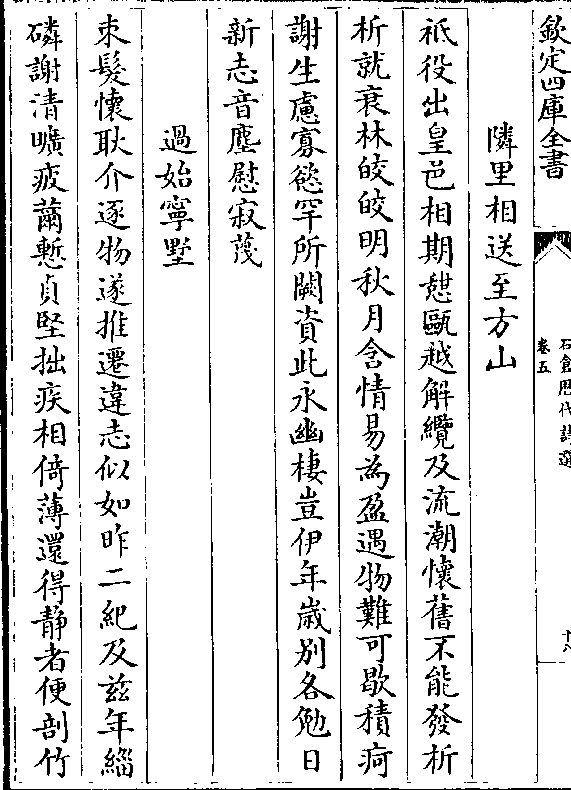 欽定四庫全書
石倉歷代詩選
卷五
隣里相送至方山
祇役出皇邑相期憇甌越解纜及流潮懷舊不能發析
析就衰林皎皎明秋月含情易為盈遇物難可歇積疴
謝生慮寡慾罕所闕資此永幽棲豈伊年嵗別各勉日
新志音塵慰寂蔑
過始寧墅
束髮懷耿介逐物遂推遷違志似如昨二紀及兹年緇
磷謝清曠疲薾慙貞堅拙疾相倚薄還得静者便剖竹